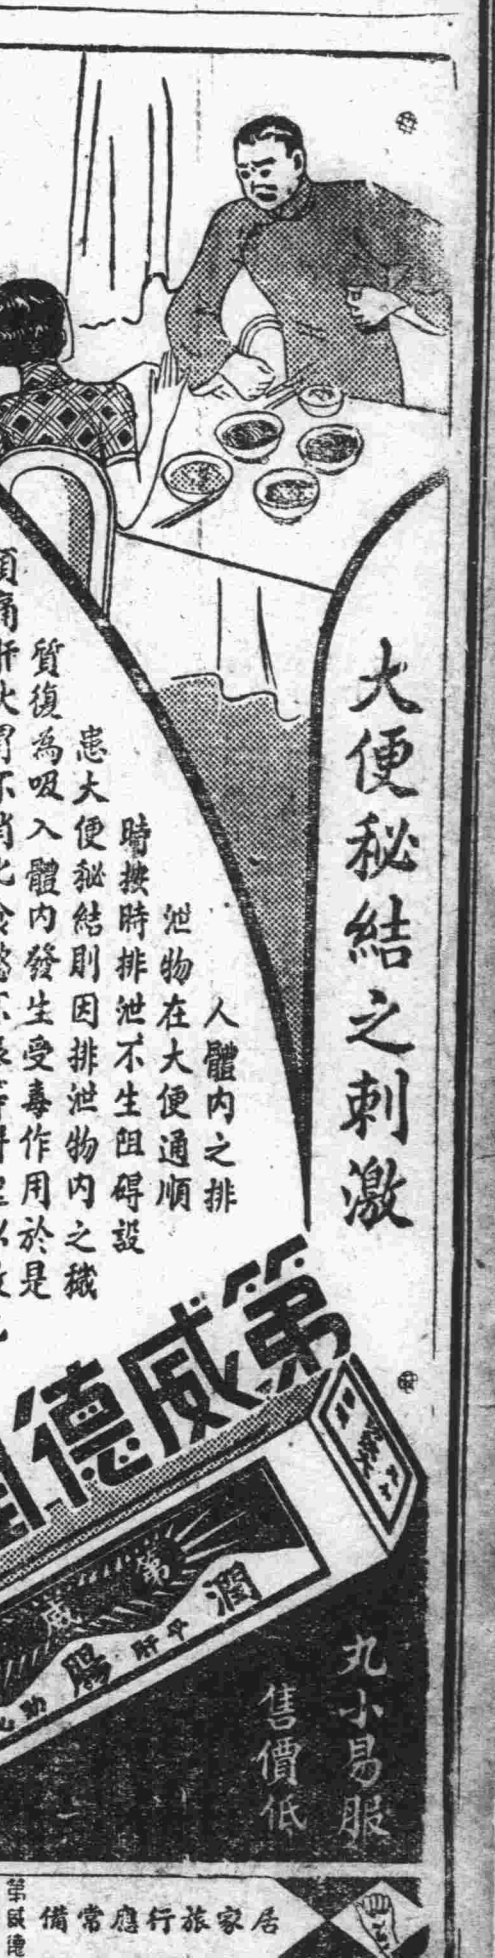 大便秘結之刺激
人體內之排
泄物在大便通順
時按時排泄不生阻碍設
患大便秘結則因排泄物內之穢
質復為吸入體內發生受毒作用於是
頭痛肝火胃不消化
第威德潤
第威
潤腸
平肝
助
丸小易服
售價低
居家旅行應常備
第威德